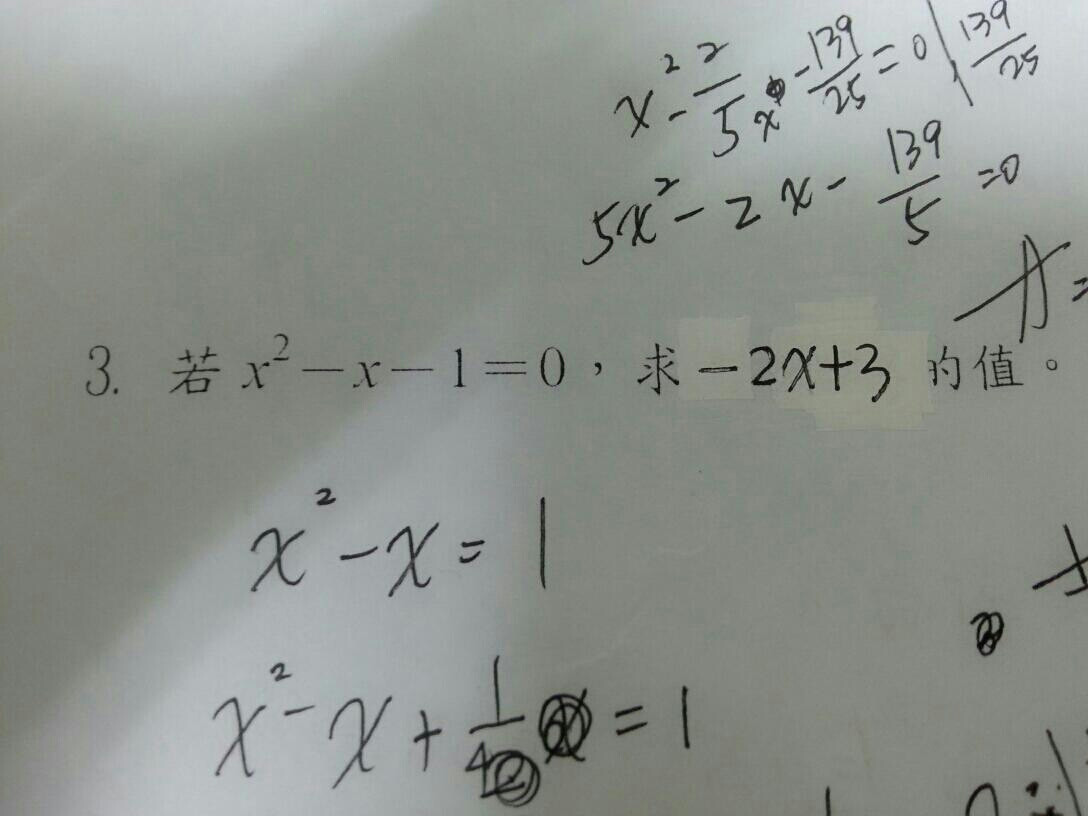 x²-2/5x-139/25=0 139/25
5x²-2x-139/5=0
3. 若 x²-x-1=0,求 -2x+3 的值。
x²-x=1
x²-x+1/4=1